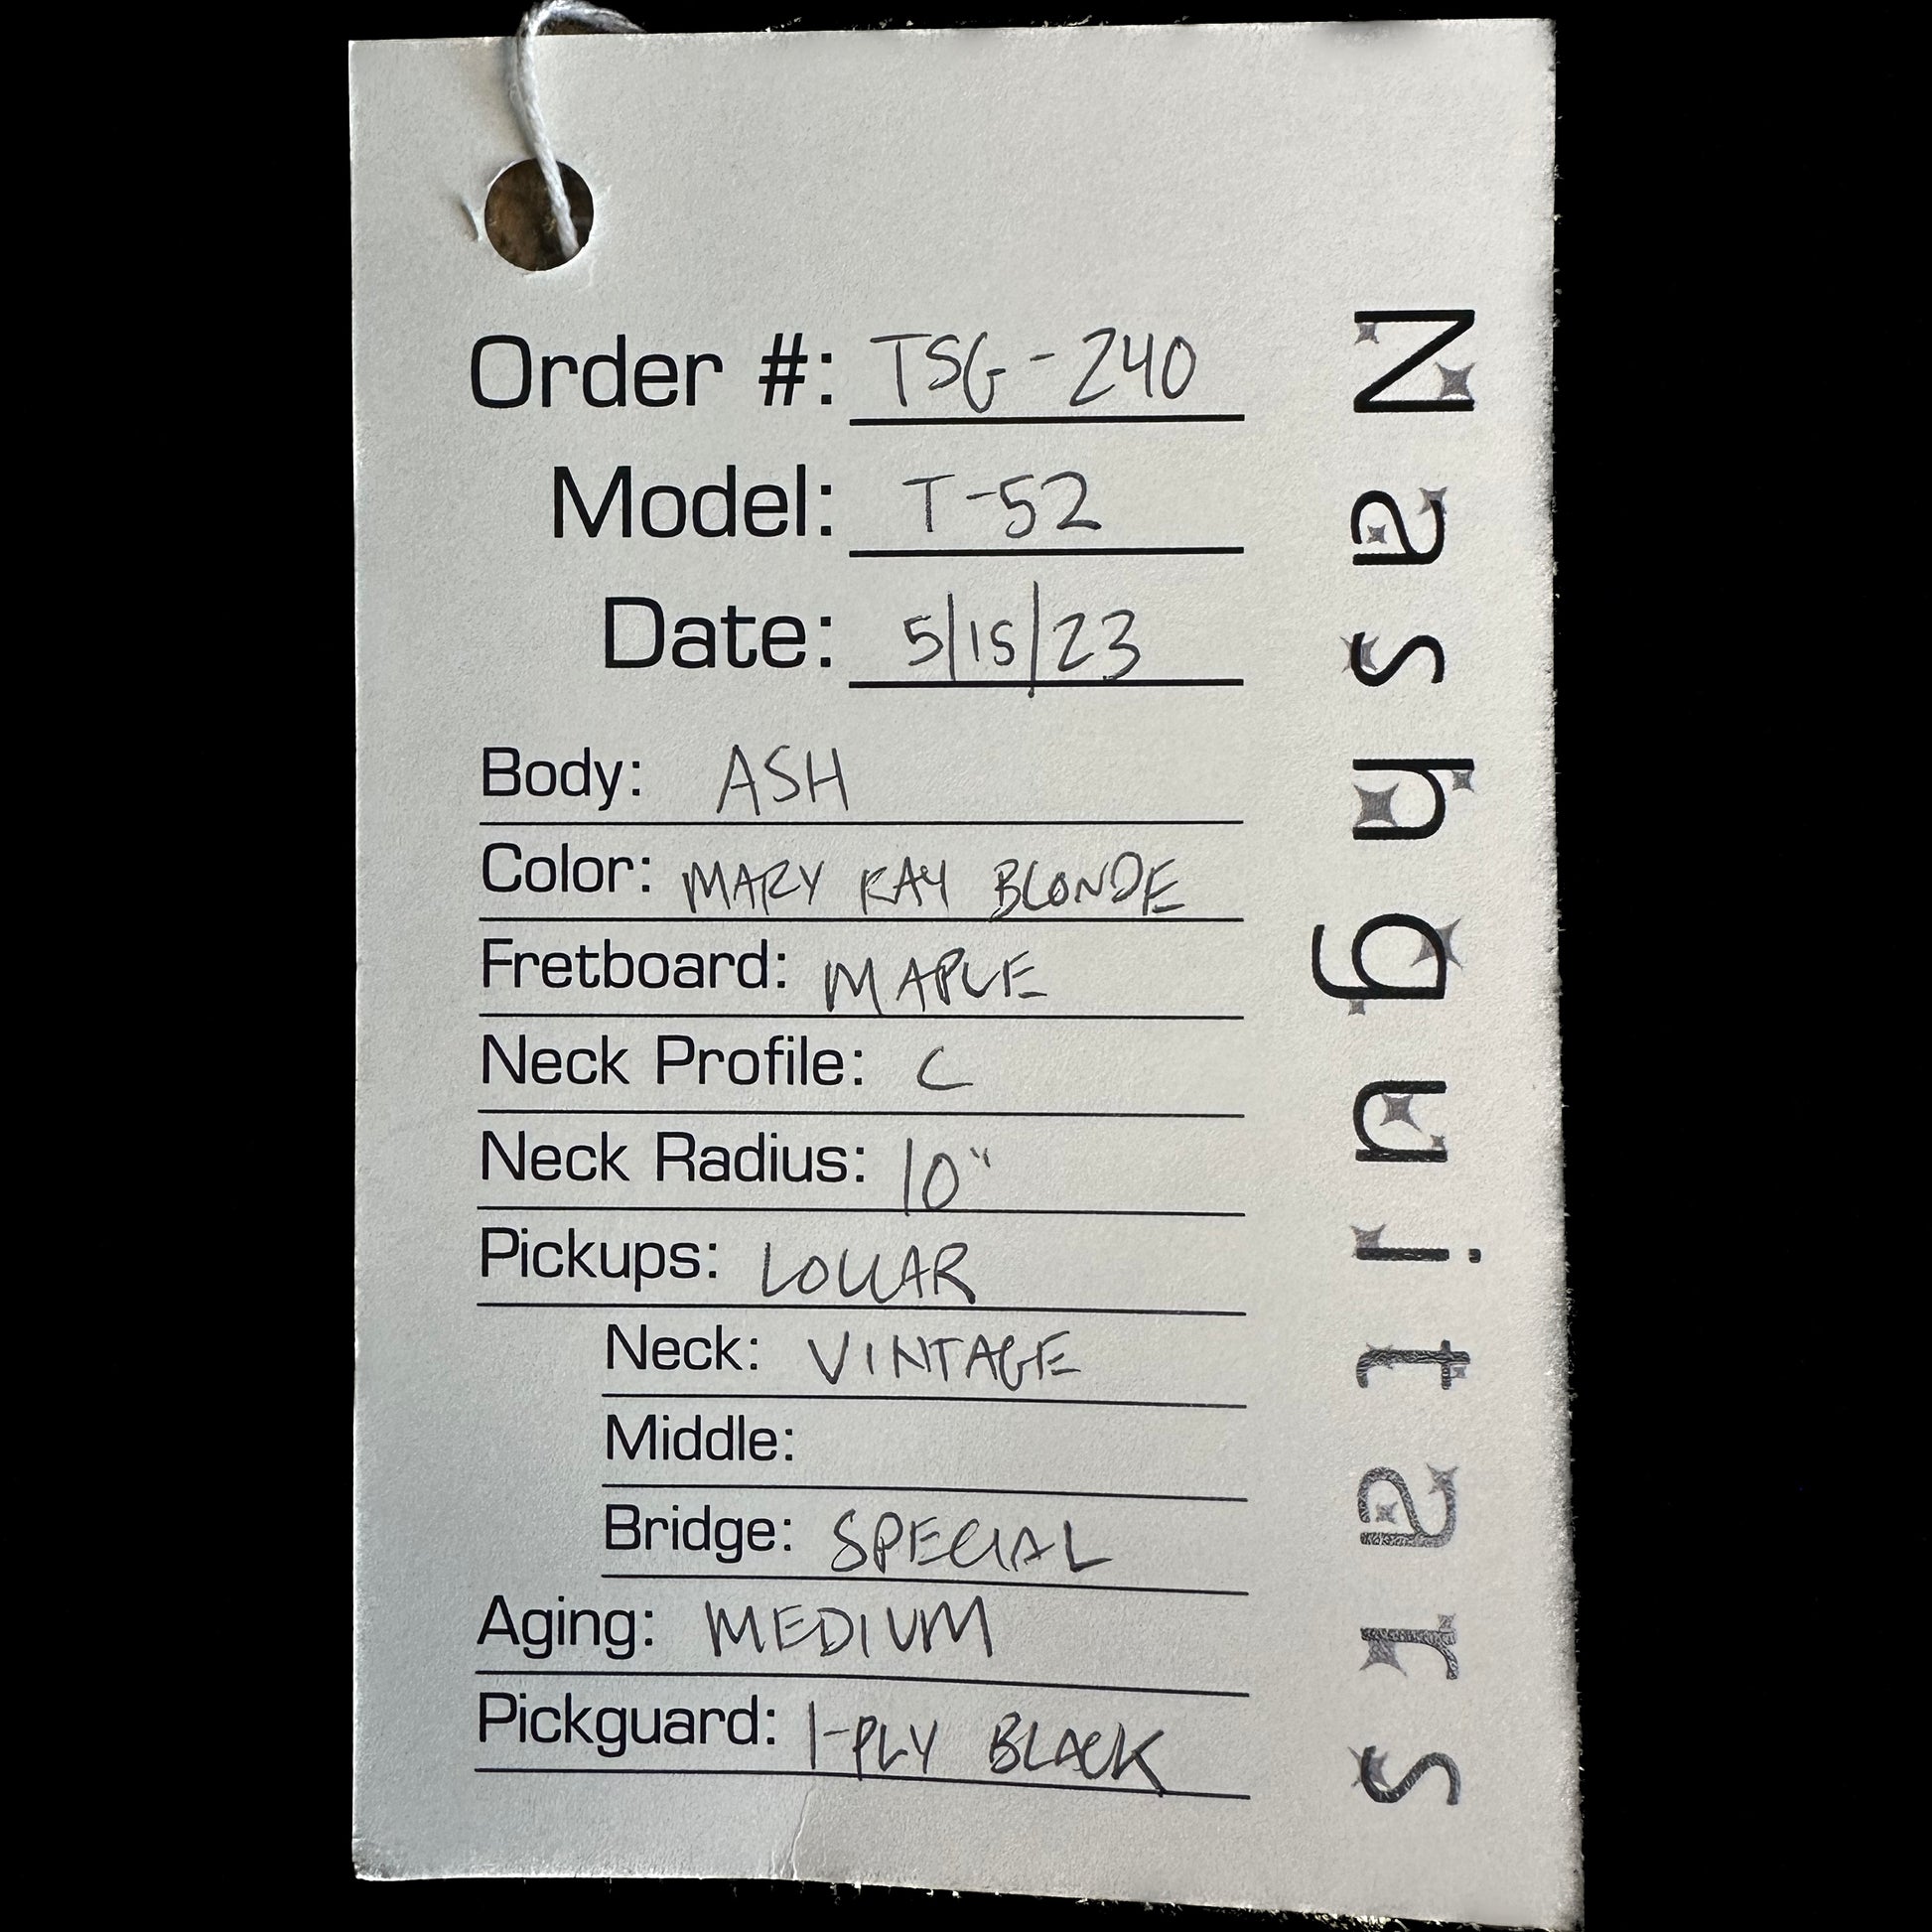 Order #: TSG-240
Model: T-52
Date: 5/15/23
Body: ASH
Color: MARY KAY BLONDE
Fretboard: MAPLE
Neck Profile: C
Neck Radius: 10"
Pickups: LOLLAR
Neck: VINTAGE
Middle:
Bridge: SPECIAL
Aging: MEDIUM
Pickguard: 1-PLY BLACK
Nashguitars